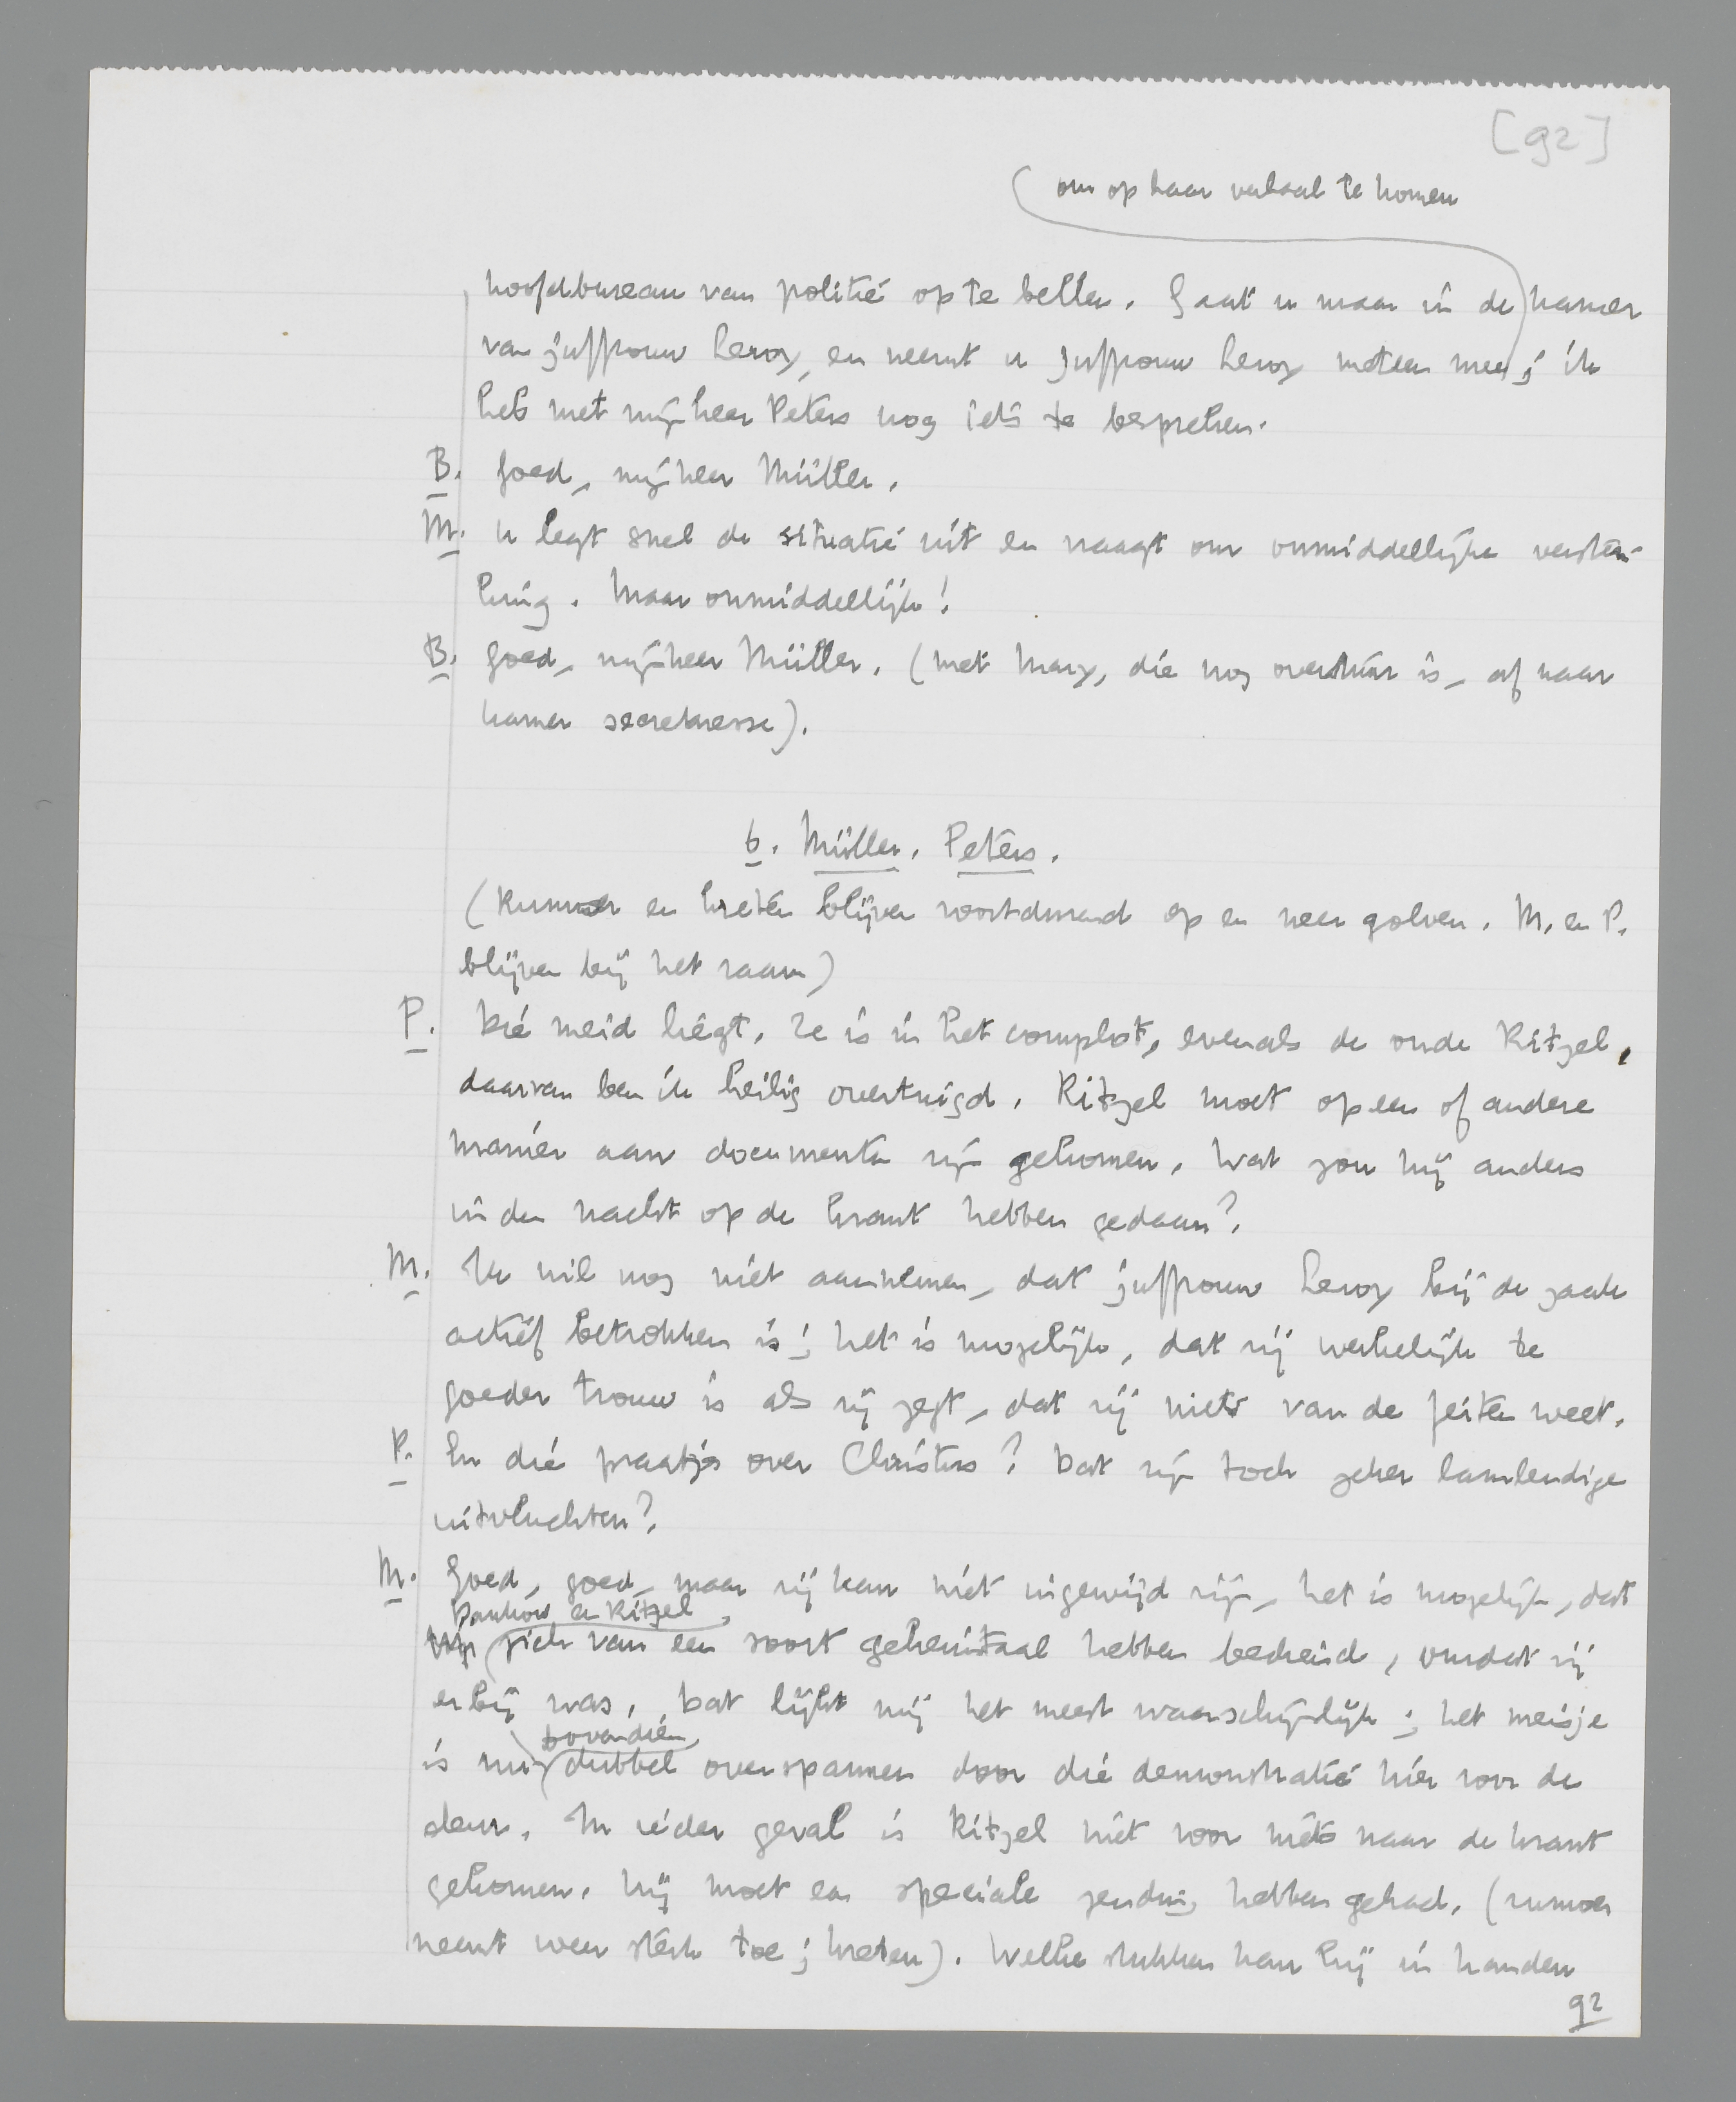 [92]
om op haar verhaal te komen
hoofdbureau van politie op te bellen. Gaat u maar in de kamer
van juffrouw Leroy, en neemt u juffrouw Leroy meteen mee; ik
heb met mijnheer Peters nog iets te bespreken.
B. Goed, mijnheer Müller.
M. U legt snel de situatie uit en vraagt om onmiddellijke verster-
king. Maar onmiddellijk!
B. Goed, mijnheer Müller. (met Mary, die nog overstuur is, af naar
kamer secretaresse).
6. Müller. Peters.
(Rumoer en kreten blijven voortdurend op en neer golven. M. en P.
blijven bij het raam)
P. Die meid liegt. Ze is in het complot, evenals de oude Ritzel,
daarvan ben ik heilig overtuigd. Ritzel moet op een of andere
manier aan documenten zijn gekomen. Wat zou hij anders
in den nacht op de krant hebben gedaan?
M. Ik wil nog niet aannemen, dat juffrouw Leroy bij de zaak
actief betrokken is; het is mogelijk, dat zij werkelijk te
goeder trouw is als zij zegt, dat zij niets van de feiten weet.
P. En die praatjes over Christus? Dat zijn toch zeker lamlendige
uitvluchten?
M. Goed, goed, maar zij kan niet ingewijd zijn, het is mogelijk, dat
Pankow en Ritzel
zich van een soort geheimtaal hebben bediend, omdat zij
erbij was. Dat lijkt mij het meest waarschijnlijk; het meisje
bovendien
is nu dubbel overspannen door die demonstratie hier voor de
deur. In ieder geval is Ritzel niet voor niets naar de krant
gekomen. Hij moet een speciale zending hebben gehad. (rumoer
neemt weer sterk toe; kreten). Welke stukken kan hij in handen
92